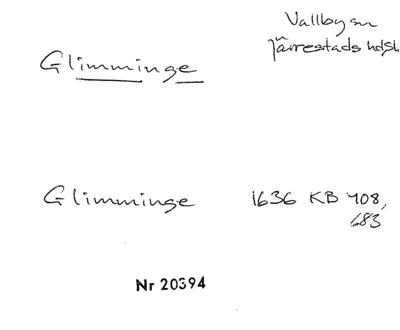 Vallby sn
Järrestads hdsl
Glimminge
Glimminge 1636 KB 408,
683
Nr 20394